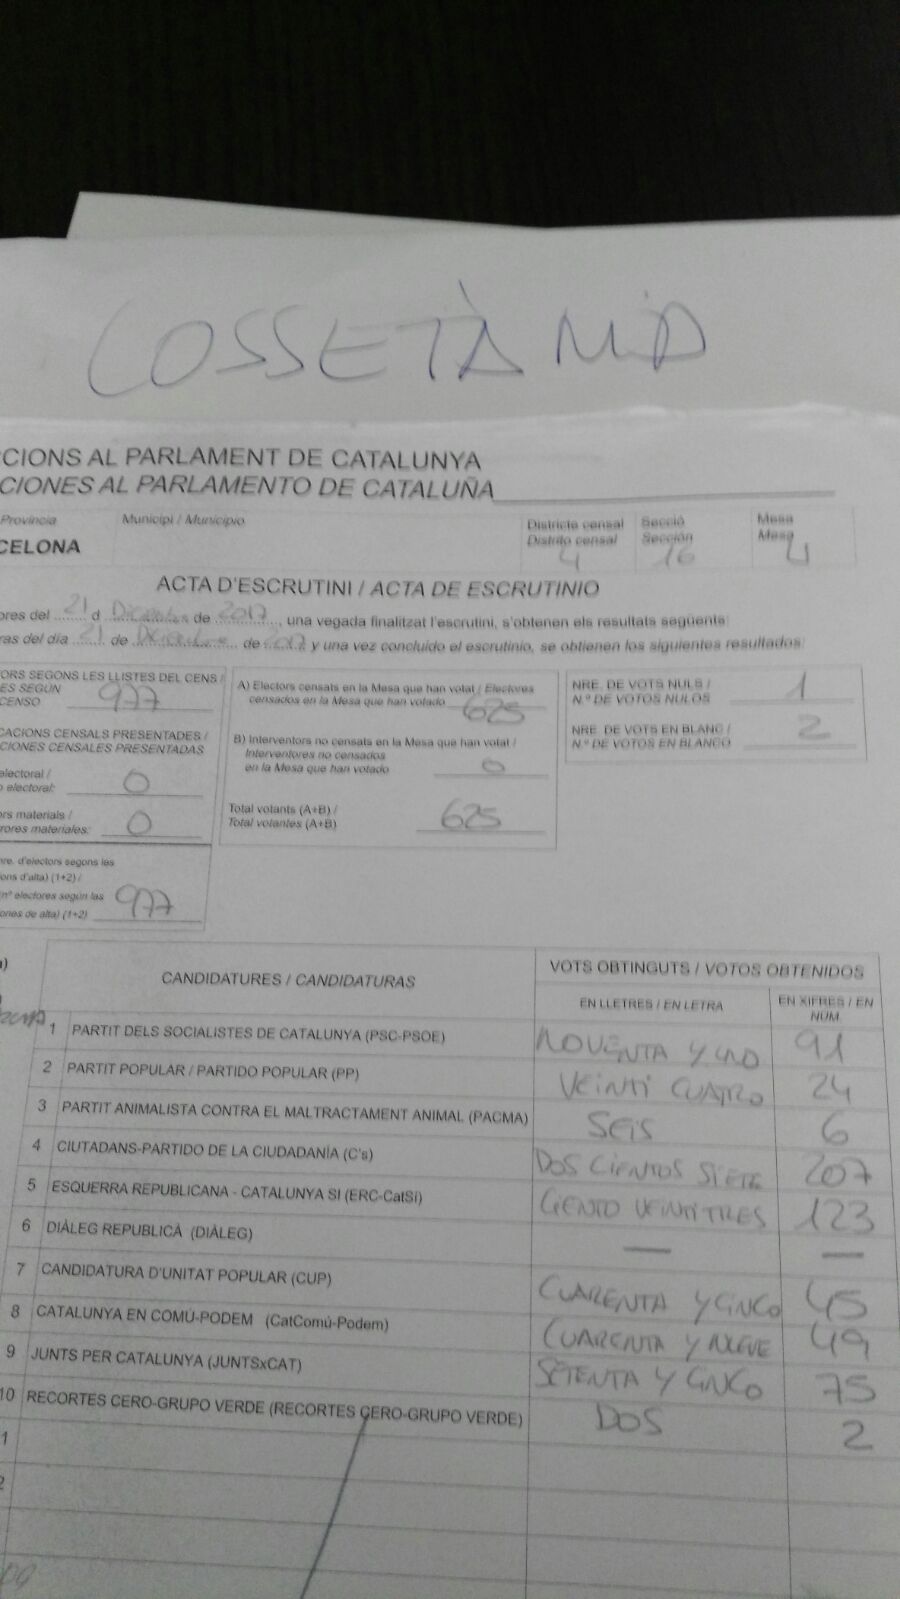 COSSETÀNIA
CCIONS AL PARLAMENT DE CATALUNYA
CIONES AL PARLAMENTO DE CATALUÑA
Provincia Municipi / Municipio Districte censal Secció Mesa
CELONA Distrito censal Sección Mesa
4 16 U
ACTA D'ESCRUTINI / ACTA DE ESCRUTINIO
ores del 21 d Diciembre de 2017, una vegada finalitzat l'escrutini, s'obtenen els resultats següents
ras del día 21 de Diciembre de 2017 y una vez concluido el escrutinio, se obtienen los siguientes resultados:
ORS SEGONS LES LLISTES DEL CENS /
ES SEGÚN
CENSO 977
CACIONS CENSALS PRESENTADES /
CIONES CENSALES PRESENTADAS
electoral /
o electoral: 0
ors materials /
rores materiales: 0
nre. d'electors segons les
ons d'alta) (1+2) /
nº electores según las
ones de alta) (1+2) 977
A) Electors censats en la Mesa que han votat / Electores
censados en la Mesa que han votado 625
B) Interventors no censats en la Mesa que han votat /
Interventores no censados
en la Mesa que han votado 0
Total votants (A+B) /
Total votantes (A+B) 625
NRE. DE VOTS NULS /
N.º DE VOTOS NULOS 1
NRE. DE VOTS EN BLANC /
N.º DE VOTOS EN BLANCO 2
CANDIDATURES / CANDIDATURAS VOTS OBTINGUTS / VOTOS OBTENIDOS
EN LLETRES / EN LETRA EN XIFRES / EN
NÚM.
1 PARTIT DELS SOCIALISTES DE CATALUNYA (PSC-PSOE) NOVENTA Y UNO 91
2 PARTIT POPULAR / PARTIDO POPULAR (PP) VEINTI CUATRO 24
3 PARTIT ANIMALISTA CONTRA EL MALTRACTAMENT ANIMAL (PACMA) SEIS 6
4 CIUTADANS-PARTIDO DE LA CIUDADANÍA (C's) DOS CIENTOS SIETE 207
5 ESQUERRA REPUBLICANA - CATALUNYA SÍ (ERC-CatSí) CIENTO VEINTITRES 123
6 DIÀLEG REPUBLICÀ (DIÀLEG) — —
7 CANDIDATURA D'UNITAT POPULAR (CUP) CUARENTA Y CINCO 45
8 CATALUNYA EN COMÚ-PODEM (CatComú-Podem) CUARENTA Y NUEVE 49
9 JUNTS PER CATALUNYA (JUNTSxCAT) SETENTA Y CINCO 75
10 RECORTES CERO-GRUPO VERDE (RECORTES CERO-GRUPO VERDE) DOS 2
1
2